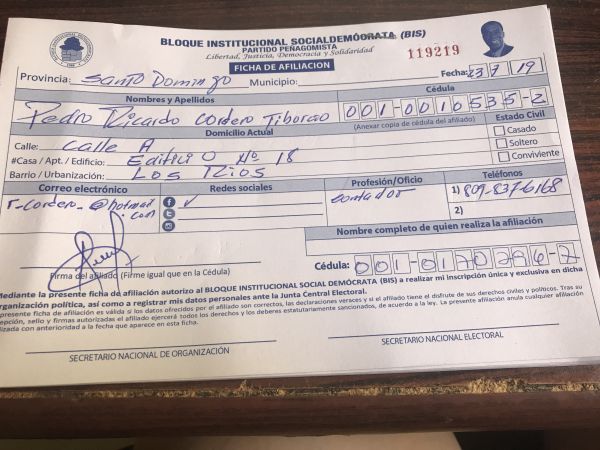 BLOQUE INSTITUCIONAL SOCIALDEMÓCRATA (BIS)
PARTIDO PEÑAGOMISTA
Libertad, Justicia, Democracia y Solidaridad
119219
FICHA DE AFILIACION
Provincia: Santo Domingo Municipio: Fecha: 23 7 19
Nombres y Apellidos Cédula
Pedro Ricardo Cordero Tiburcio 001-0010535-2
(Anexar copia de cédula del afiliado)
Domicilio Actual Estado Civil
Calle: Calle A Casado
#Casa / Apt. / Edificio: Edificio Nº 18 Soltero
Barrio / Urbanización: Los Rios Conviviente
Correo electrónico Redes sociales Profesión/Oficio Teléfonos
r_cordero_@hotmail.com contador 1) 809-837-6168
2)
Nombre completo de quien realiza la afiliación
Firma del afiliado (Firme igual que en la Cédula) Cédula: 001-0170296-7
Mediante la presente ficha de afiliación autorizo al BLOQUE INSTITUCIONAL SOCIAL DEMÓCRATA (BIS) a realizar mi inscripción única y exclusiva en dicha
organización política, así como a registrar mis datos personales ante la Junta Central Electoral.
presente ficha de afiliación es válida si los datos ofrecidos por el afiliado son correctos, las declaraciones veraces y si el afiliado tiene el disfrute de sus derechos civiles y políticos. Tras su
epción, sello y firmas autorizadas el afiliado ejercerá todos los derechos y los deberes estatutariamente sancionados, de acuerdo a la ley. La presente afiliación anula cualquier afiliación
lizada con anterioridad a la fecha que aparece en esta ficha.
SECRETARIO NACIONAL DE ORGANIZACIÓN SECRETARIO NACIONAL ELECTORAL